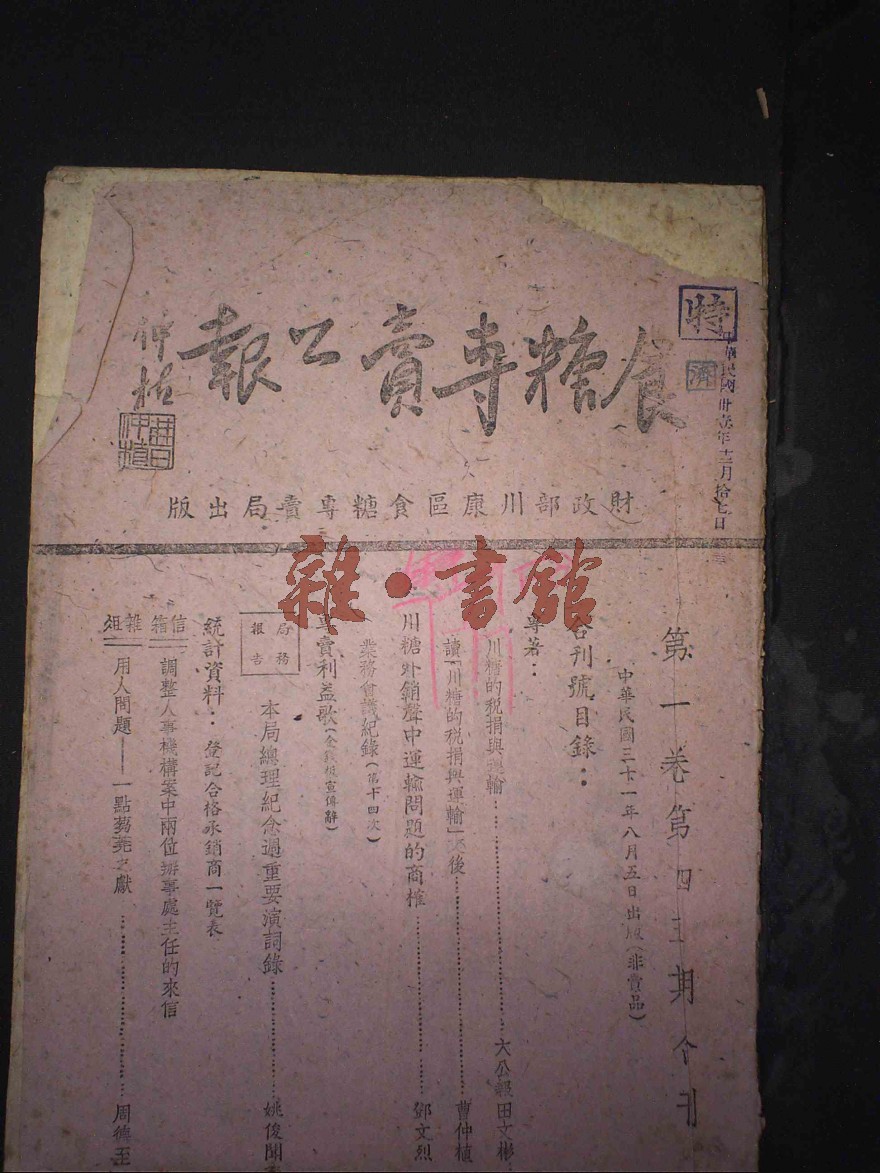 食糖專賣公報
仲植
曹仲植印
財政部川康區食糖專賣局出版
特
濟
中華民國卅壹年十二月拾七日
雜·書館
第一卷第四三期合刊
中華民國三十一年八月五日出版(非賣品)
合刊號目錄：
專著：
川糖的稅捐與運輸……大公報田文彬
讀「川糖的稅捐與運輸」以後……曹仲植
川糖外銷聲中運輸問題的商榷……鄧文烈
業務會議紀錄(第十四次)
專賣利益歌(金錢板宣傳辭)
局務報告
本局總理紀念週重要演詞錄……姚俊聞
統計資料：登記合格承銷商一覽表
信箱 調整人事機構案中兩位辦事處主任的來信
雜俎 用人問題——一點芻蕘之獻……周德至